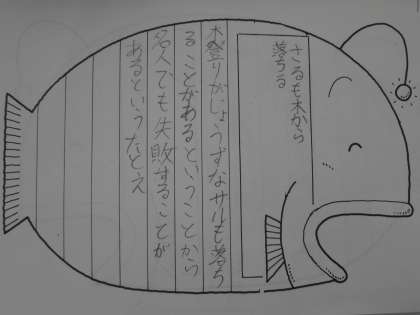 さるも木から
落ちる
木登りがじょうずなサルも落ち
ることがあるということから
名人でも失敗することが
あるというたとえ